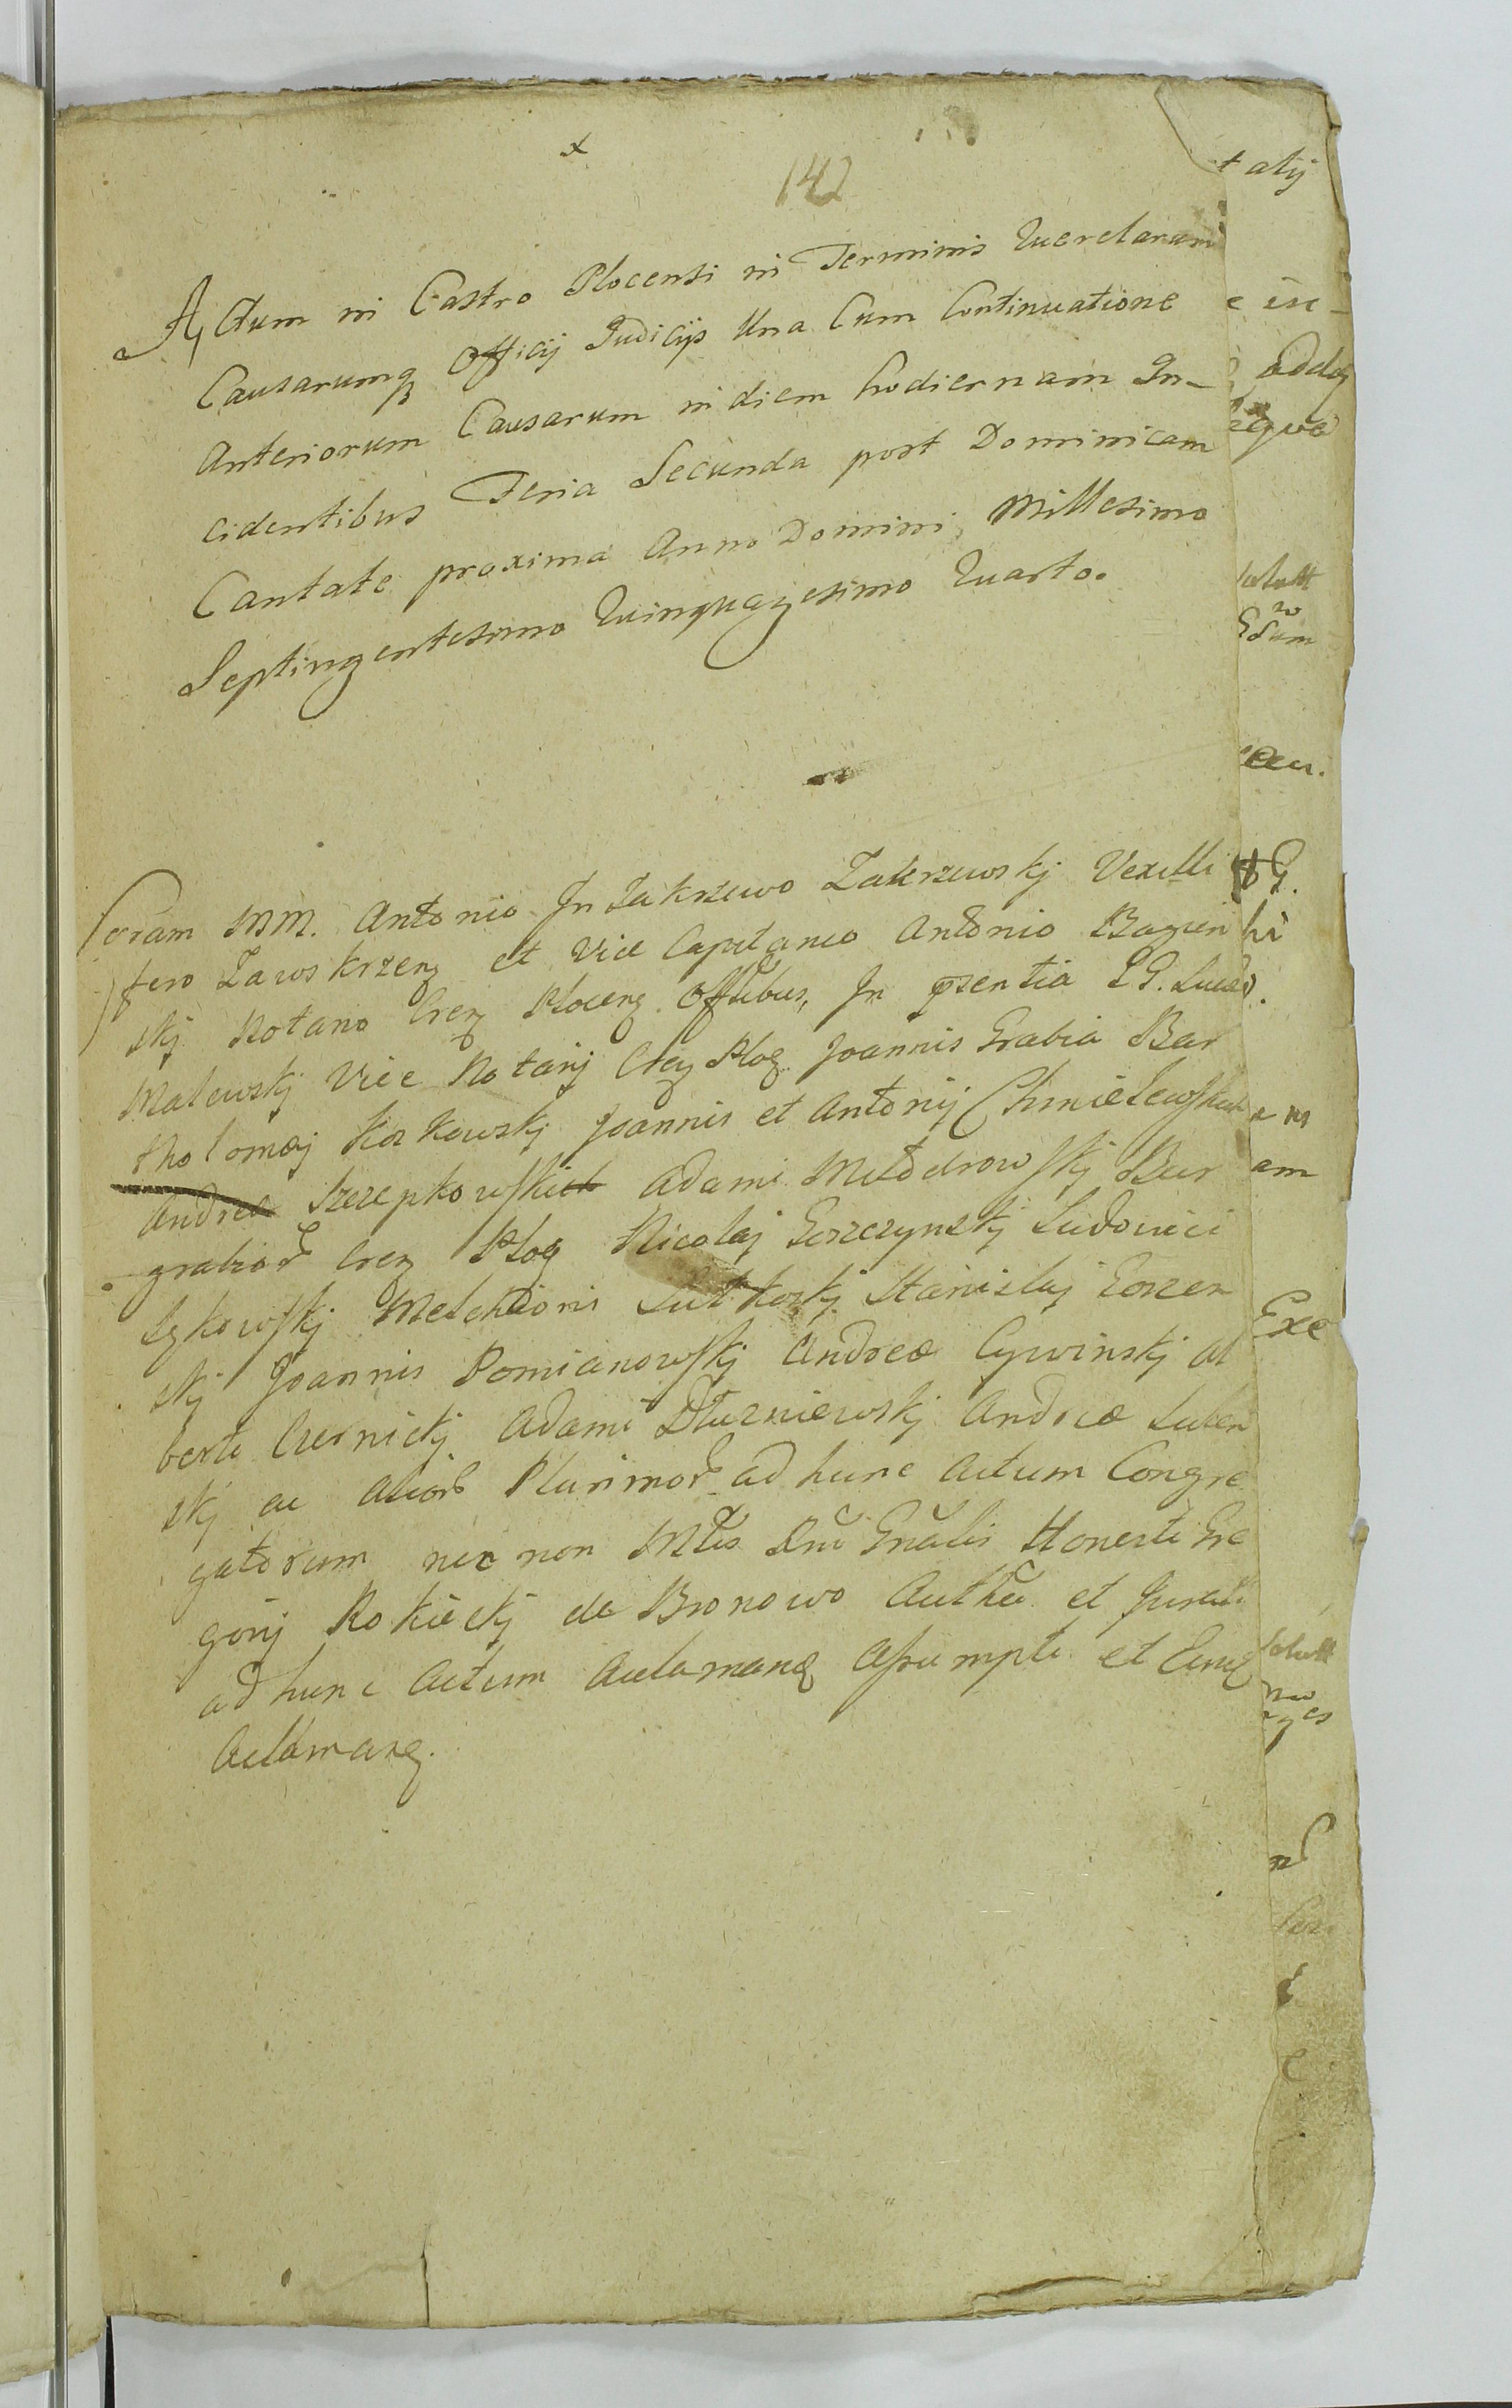 x
142
Actum in Castro Plocensi in Terminis Querelarum
Causarumq Officij Judicijs Una Cum Continuatione
Anteriorum Causarum in diem hodiernam In-
cidentibus Feria Secunda post Dominicam
Cantate proxima Anno Domini Millesimo
Septingentesimo Quinquagesimo Quarto.
Coram MM. Antonio In Zakrzewo Zakrzewskj Vexilli
fero Zawskrzen et Vice Capitaneo Antonio Bagien
skj Notario Cren Plocen. Offlibus, In pzentia GG.
Malewskj Vice Notarij Cren Ploc. Joannis Grabia Bar
tholomej Koskowskj Joannis et Antonij Chmielewskich
Andrea Szczepkowskich Adami Modrowskj Bur
grabior Cren Ploc Nicolaj Gorczynskj Ludovici
Lykowskj Melchioris Sutkoskj Stanislaj Gorzen
skj Joannis Pomianowskj Andreæ Cywinskj Al
berti Czernickj Adami Dłuzniewskj Andreæ Luben
skj ac alior Plurimor ad hunc Actum Congre
gatorum nec non Mtlis Rni Gnalis Honesti Gre
gorij Rokickj de Bronowo Auth et Jurati
ad hunc Actum Aclamanq Assumpti et Eund
Aclamanq.
t atij
e in-
addes
reqve
Gdum
ren.
G.
hi
am
Exe